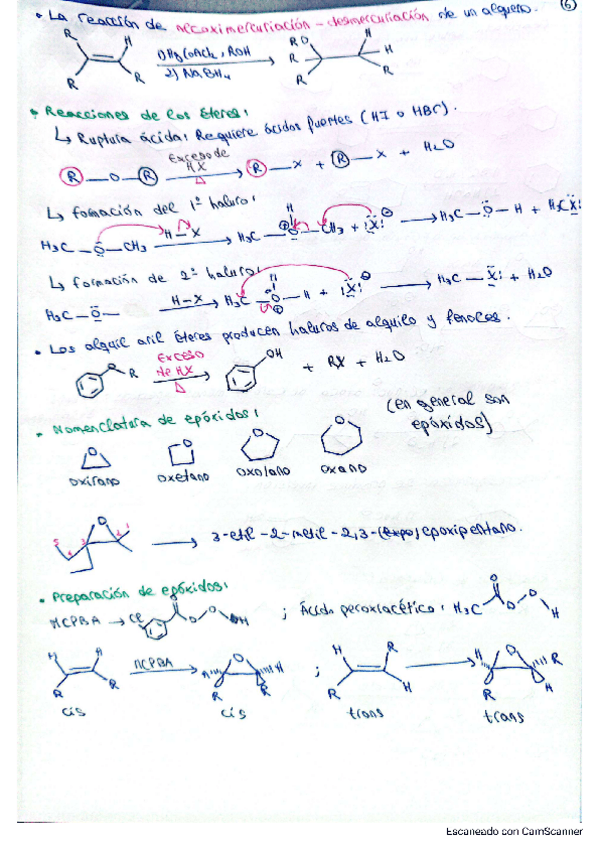 • La reacción de alcoximercuriación - desmercuriación de un alqueno. (6)
R H RO H
1) Hg(OAc)2, ROH R H
2) NaBH4
R R R R
• Reacciones de los éteres:
↳ Ruptura ácida: Requiere ácidos fuertes (HI o HBr).
R—O—R Exceso de HX Δ R—X + R—X + H2O
↳ formación del 1º haluro:
H3C—O—CH3 H—X H3C—O—CH3 + :X: H3C—O—H + H3CX:
↳ formación de 2º haluro:
H3C—O— H—X H3C—O—H + :X: H3C—X: + H2O
• Los alquil aril éteres producen haluros de alquilo y fenoles.
O R Exceso de HX Δ OH + RX + H2O
• Nomenclatura de epóxidos: (en general son epóxidos)
O O O O
oxirano oxetano oxolano oxano
5 3 O 2 1 3-etil-2-metil-2,3-(expo)epoxipentano.
• Preparación de epóxidos:
MCPBA → Cl O O OH ; Ácido peroxiacético: H3C O O O H
H H R R MCPBA H O H R R ; H R R H H O R R H
cis cis trans trans
Escaneado con CamScanner